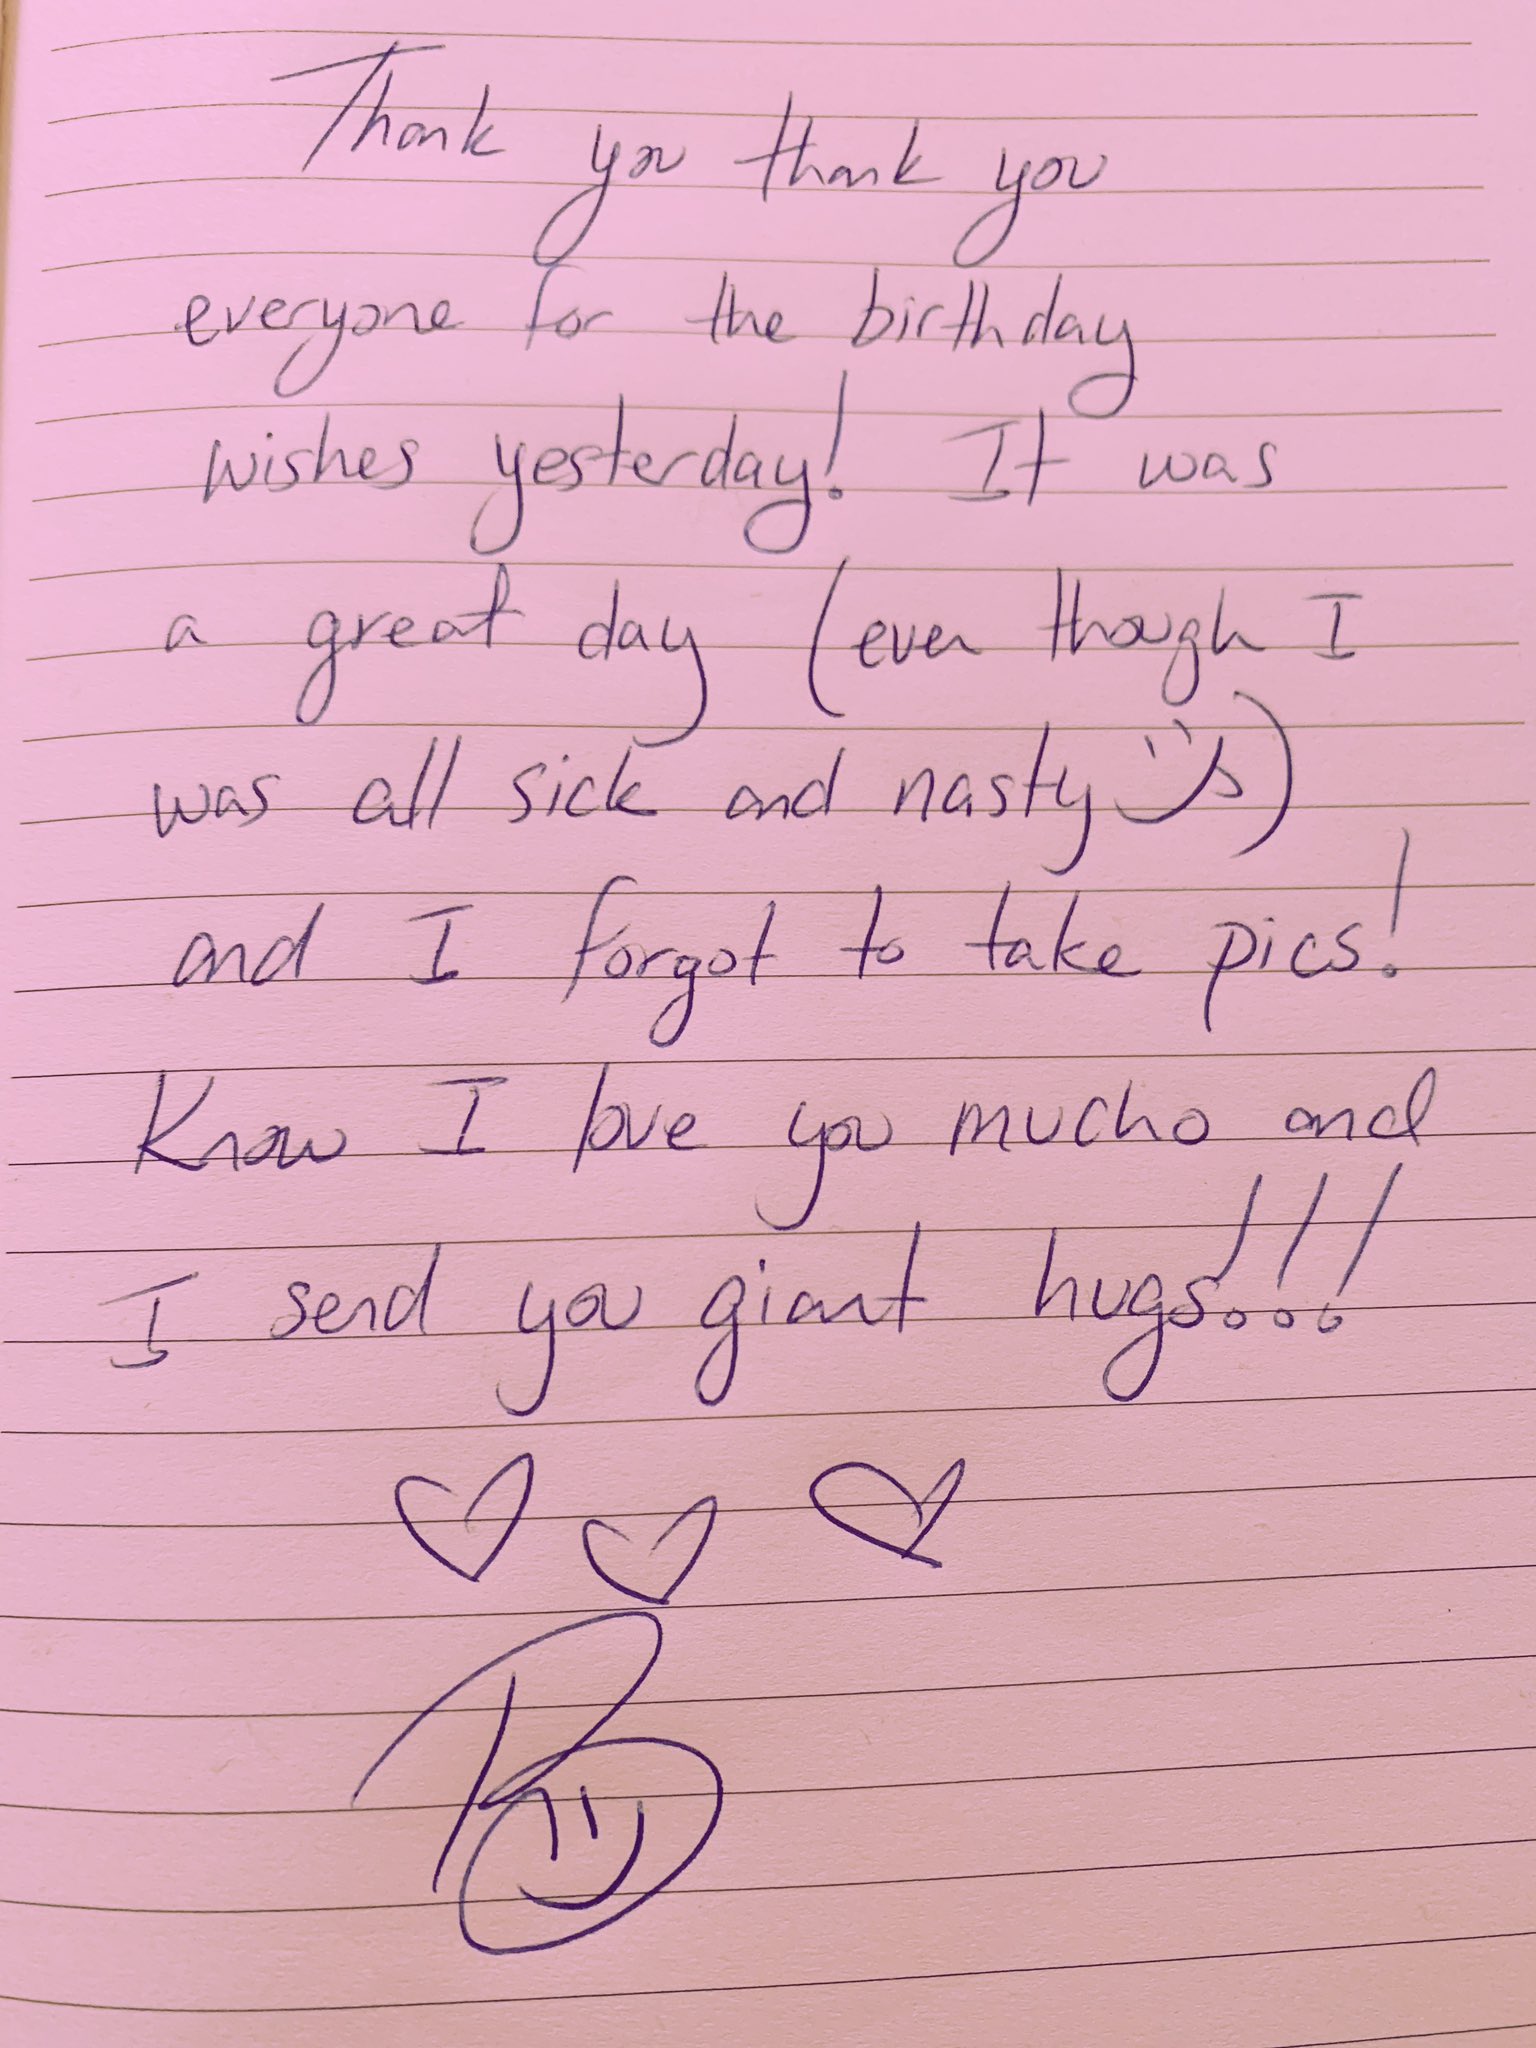 Thank you thank you
everyone for the birthday
wishes yesterday! It was
a great day (even though I
was all sick and nasty)
and I forgot to take pics!
Know I love you mucho and
I send you giant hugs!!!
B